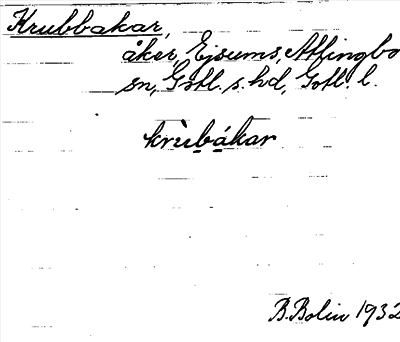 Krubbakar,
åker, Ejsums, Atlingbo
sn, Gotl. s. hd, Gotl. l.
krùbákar
B. Bolin 1932